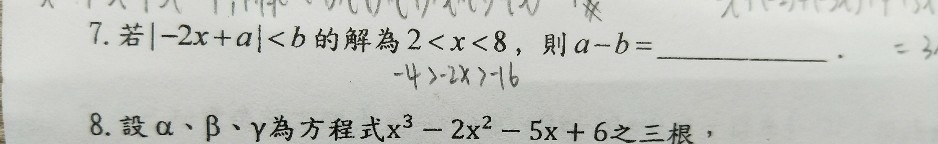 7. 若|−2x+a|<b 的解為 2<x<8，則 a−b=__________.
-4>-2x>-16
8. 設 α、β、γ為方程式x³ − 2x² − 5x + 6之三根，